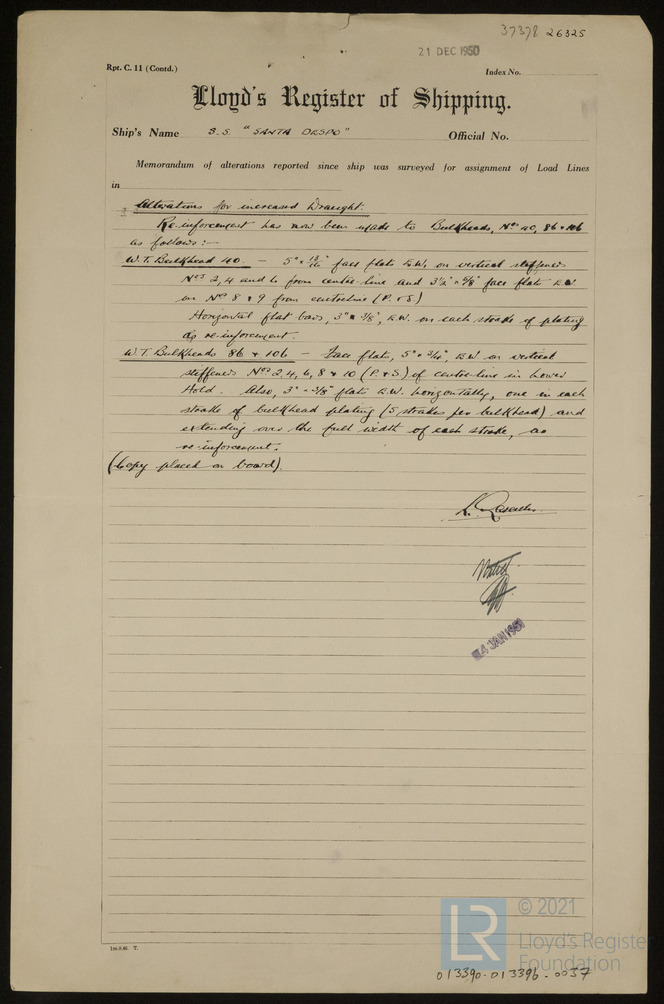 37378 26325
21 DEC 1950
Rpt. C. 11 (Contd.)
Index No.
Lloyd's Register of Shipping.
Ship's Name S.S. "SANTA DESPO" Official No.
Memorandum of alterations reported since ship was surveyed for assignment of Load Lines
in
Alterations for increased Draught:
Re-inforcement has now been made to Bulkheads, Nos 40, 86 & 106
as follows:—
W.T. Bulkhead 40. — 5" × face flats E.W. on vertical stiffeners
Nos 2, 4 and 6 from centre line and 3½" × 5/8" face flats E.W.
on Nos 8 & 9 from centreline (P. & S.)
Horizontal flat bars, 3" × 3/8", E.W. on each strake of plating
as re-inforcement.
W.T. Bulkheads 86 & 106 — Face flats, 5" × 3/4" E.W. on vertical
stiffeners Nos 2, 4, 6, 8 & 10 (P. & S.) of centre-line in Lower
Hold. Also, 3" × 3/8" flats E.W. horizontally, one in each
strake of bulkhead plating (5 strakes per bulkhead) and
extending over the full width of each strake, as
re-inforcement.
(Copy placed on board).
Noted
4 JAN 1951
T.
© 2021
LR
Lloyd's Register
Foundation
013390-013396-0037